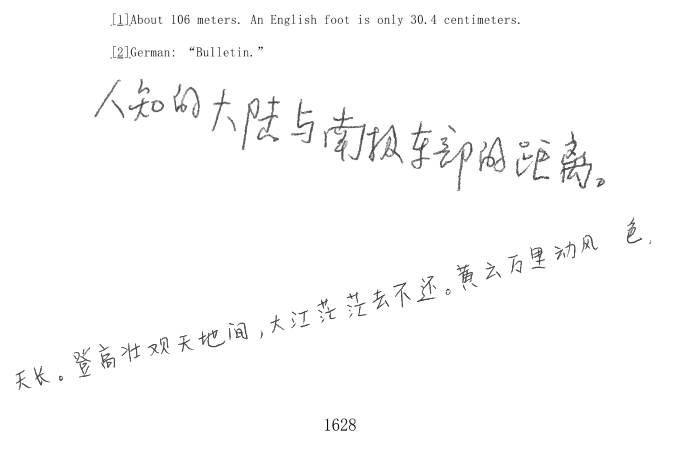 [1]About 106 meters. An English foot is only 30.4 centimeters.
[2]German: “Bulletin.”
人知的大陆与南极车部的距离。
天长。登高壮观天地间,大江茫茫去不还。黄云万里动风 色,
1628